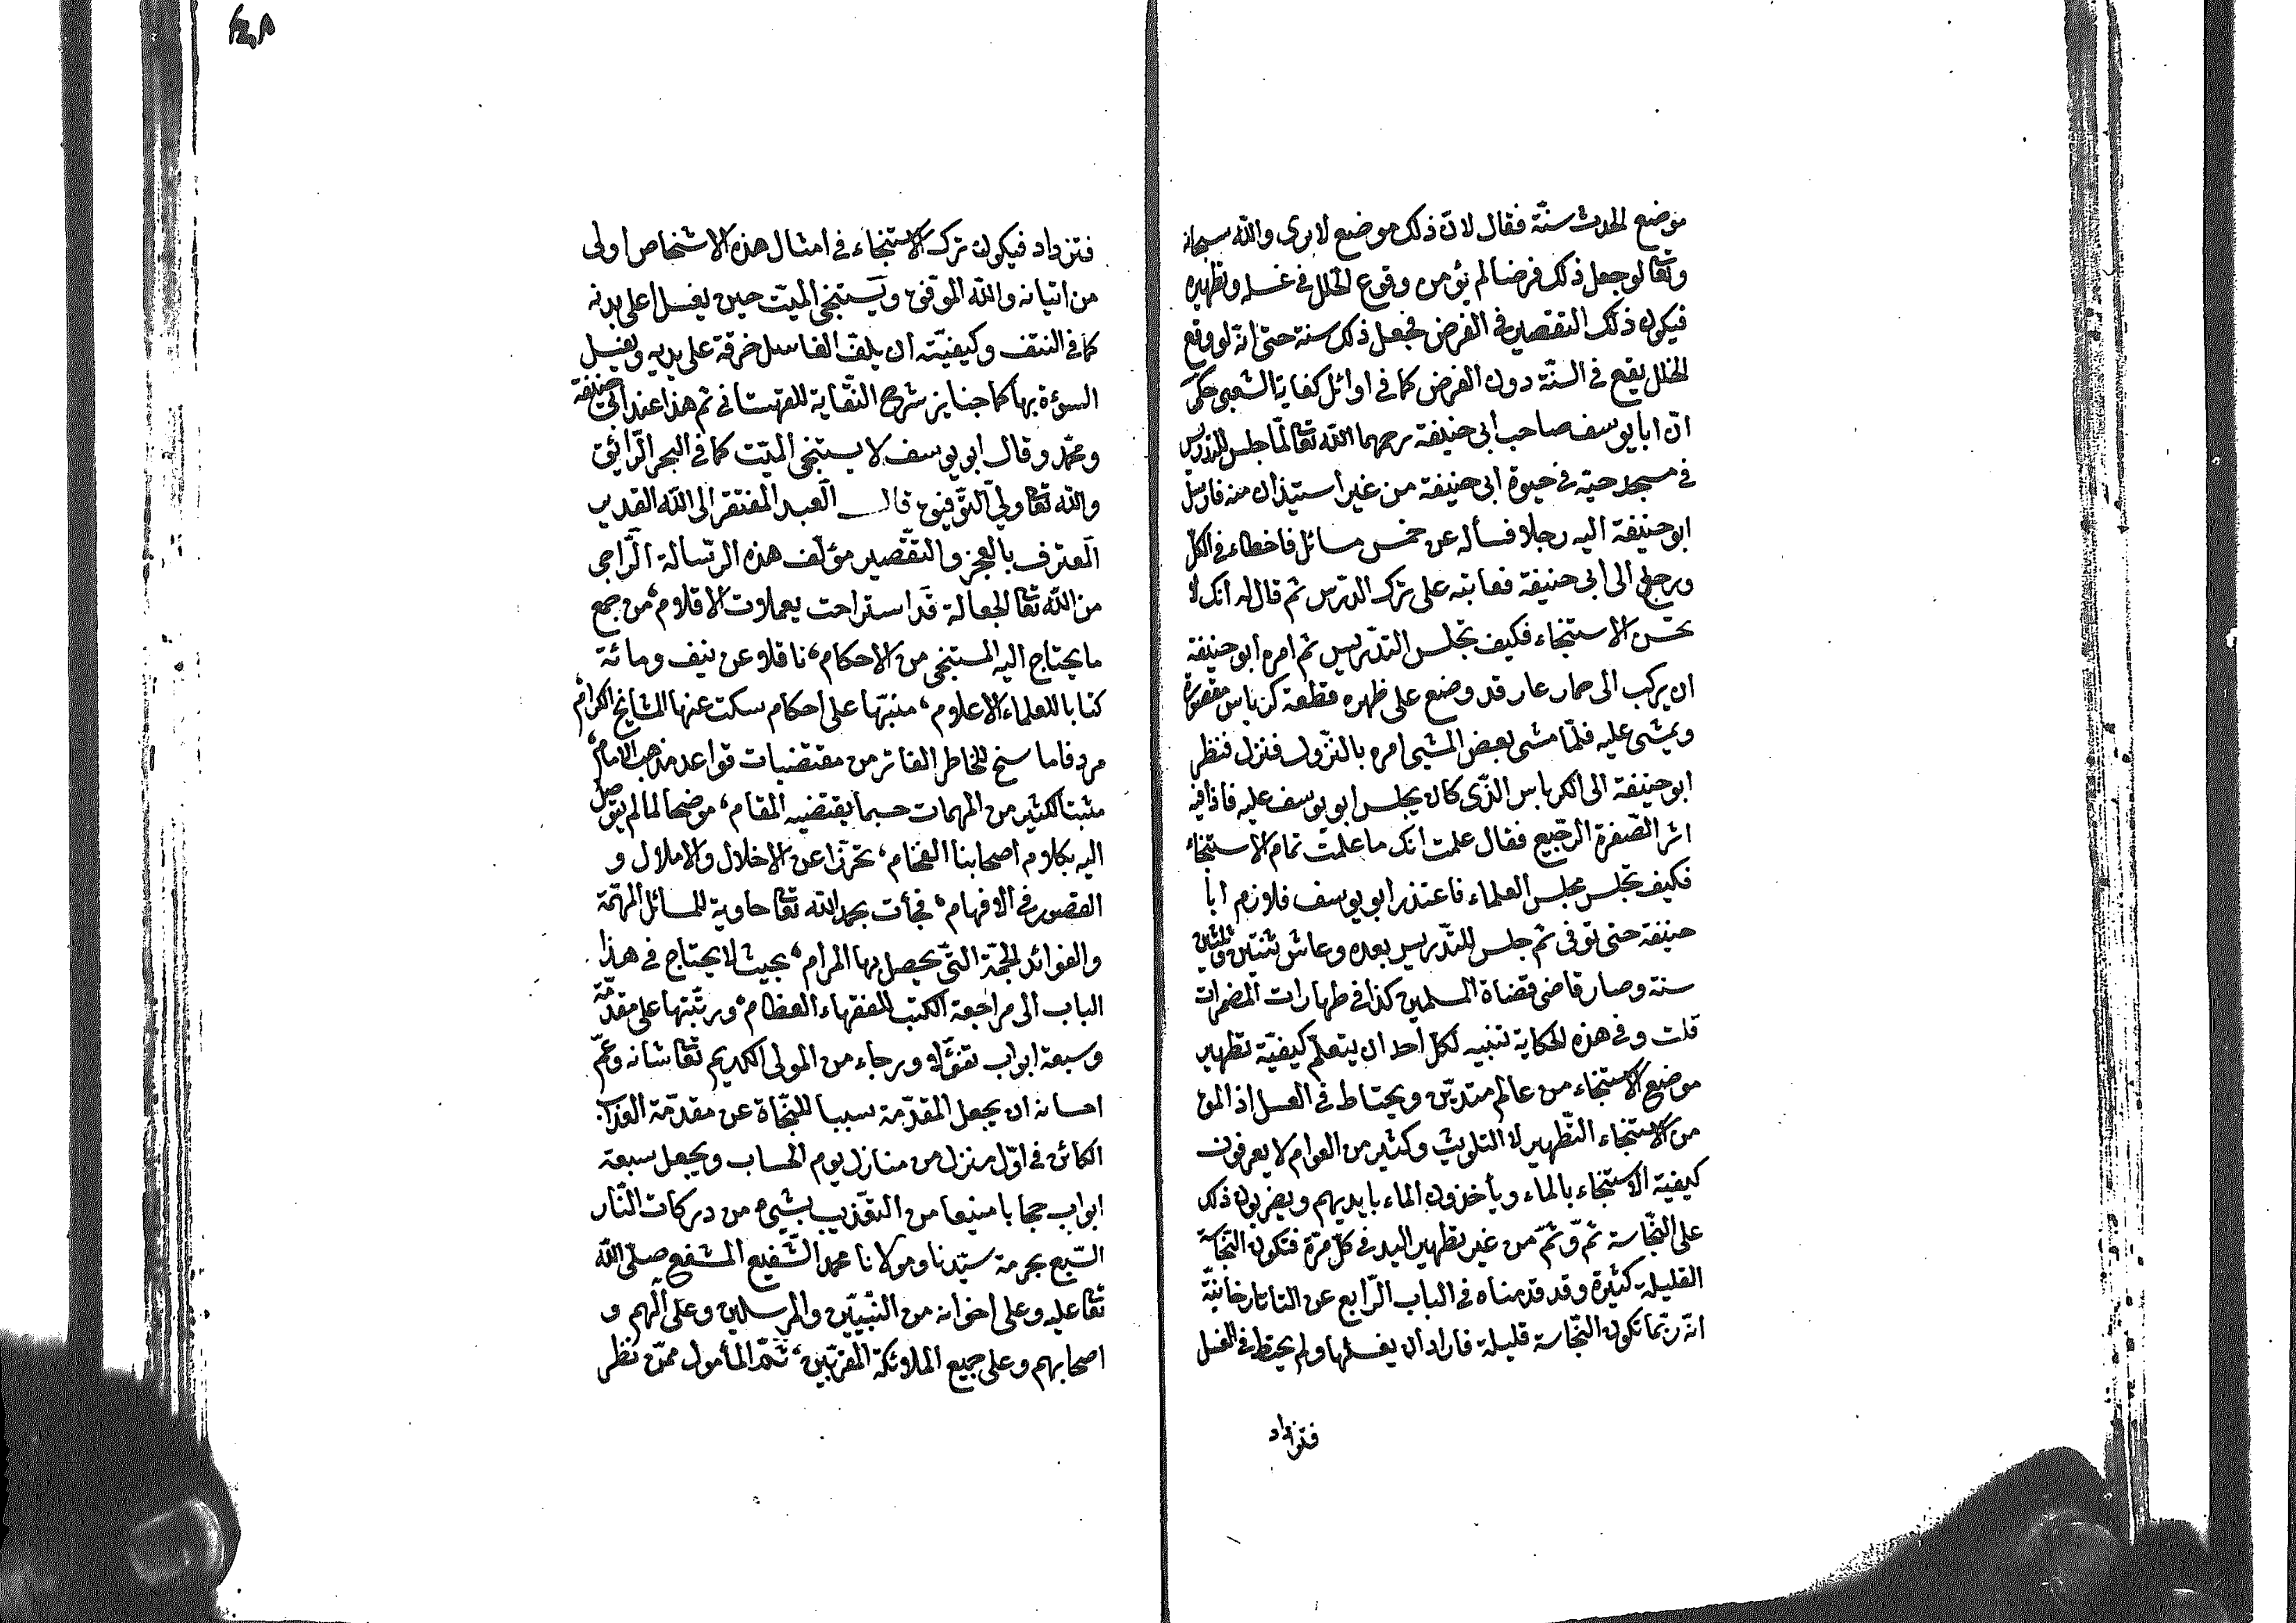 موضع الحدث سنّة فقال لانّ ذلك موضع لا يرى والله سبحانه
وتعا لو جعل ذلك فرضا لم يؤمن وقوع الخلل في غسله وتطهيره
فيكون ذلك التقصير في الفرض فجعل ذلك سنة حتى انّه لو وقع
الخلل يقع في السنّة دون الفرض كما في اوائل كفاية الشعبي حكى
انّ ابا يوسف صاحب ابى حنيفة رحمهما الله تعا لمّا جلس للتدريس
في مسجد حيّه في حيوة ابى حنيفة من غير استيذان منه فارسل
ابو حنيفة اليه رجلا فسأله عن خمس مسائل فاخطاء في الكلّ
ورجع الى ابى حنيفة فعابته على ترك الدرس ثم قال له انك لا
تحسن الاستنجاء فكيف تجلس التدريس ثم امره ابو حنيفة
ان يركب الى حمار عار قد وضع على ظهره قطعة كرباس مقصورة
ويمشى عليه فلمّا مشى بعض المشى امره بالنّزول فنزل فنظر
ابو حنيفة الى الكرباس الذّى كان يجلس ابو يوسف عليه فاذا فيه
اثر الصّفرة الرجيع فقال علمت انك ما علمت تمام الاستنجاء
فكيف تجلس مجلس العلماء فاعتذر ابو يوسف فلازم ابا
حنيفة حتى توفى ثم جلس للتّدريس بعده وعاش ثنتين وثلثين
سنة وصار قاضى قضاة المسلمين كذا في طهارات المضمرات
قلت وفي هذه الحكاية تنبيه لكلّ احد ان يتعلّم كيفيّة تطهير
موضع الاستنجاء من عالم متديّن ويحتاط في الغسل اذ المق
من الاستنجاء التّطهير لا التلويث وكثير من العوام لا يعرفون
كيفية الاستنجاء بالماء ويأخذون الماء بايديهم ويضربون ذلك
على النّجاسة ثمّ وثمّ من غير تطهير اليد في كلّ مرّة فتكون النّجاسة
القليلة كثيرة وقد قدمناه في الباب الرّابع عن التاتارخانيّة
انّه ربّما تكون النّجاسة قليلة فاراد ان يغسلها ولم يحتط في الغسل
فتزداد
فتزداد فيكون ترك الاستنجاء في امثال هذه الاشخاص اولى
من اتيانه والله الموّفق ويستنجى الميّت حين يغسل اعلى بدنه
كما في النتف وكيفيّته ان يلفّ الغاسل خرقة على يديه ويغسل
السوءة بها كما جنايز شرح النّقاية للقهستاني ثم هذا عند ابى حنيفة
ومحمّد وقال ابو يوسف لا يستنجى الميّت كما في البحر الرّائق
والله تعا وليّ التّوفيق قال العبد المفتقر الى الله القدير
المعترف بالعجز والتقّصير مؤلّف هذه الرّسالة الرّاجى
من الله تعا الجعالة قد استراحت يعملات الاقلام، من جمع
ما يحتاج اليه المستنجى من الاحكام، ناقلا عن نيف ومائة
كتابا للعلماء الاعلام، منبّها على احكام سكت عنها المشايخ الكرام،
مردفا ما سنح للخاطر الفاتر من مقتضيات قواعد مذهب الامام،
مثبتا لكثير من المهمات حسبما يقتضيه المقام، موضحا لما لم يتوصل
اليه بكلام اصحابنا الفخام، تحرّزا عن الاخلال والاملال و
القصور في الافهام، فجأت بحمد الله تعا حاوية للمسائل المهمّة
والفوائد الجمّة التي يحصل بها المرام، بحيث لا يحتاج في هذا
الباب الى مراجعة الكتب للفقهاء العظام، ورتّبتها على مقدّمة
وسبعة ابواب تفئّولا ورجاء من المولى الكريم تعا شانه وعمّ
احسانه ان يجعل المقدّمة سببا للنّجاة عن مقدّمة العذاب
الكائن في اوّل منزل من منازل يوم الحساب ويجعل سبعة
ابواب حجابا منيعا من التعّذيب بشيء من دركات النّار
السّبع بحرمة سيّدنا ومولانا محمد الشّفيع المشفع صلى الله
تعا عليه وعلى اخوانه من النّبيّين والمرسلين وعلى آلهم و
اصحابهم وعلى جميع الملائكة المقرّبين، ثمّ المأمول ممّن نظر